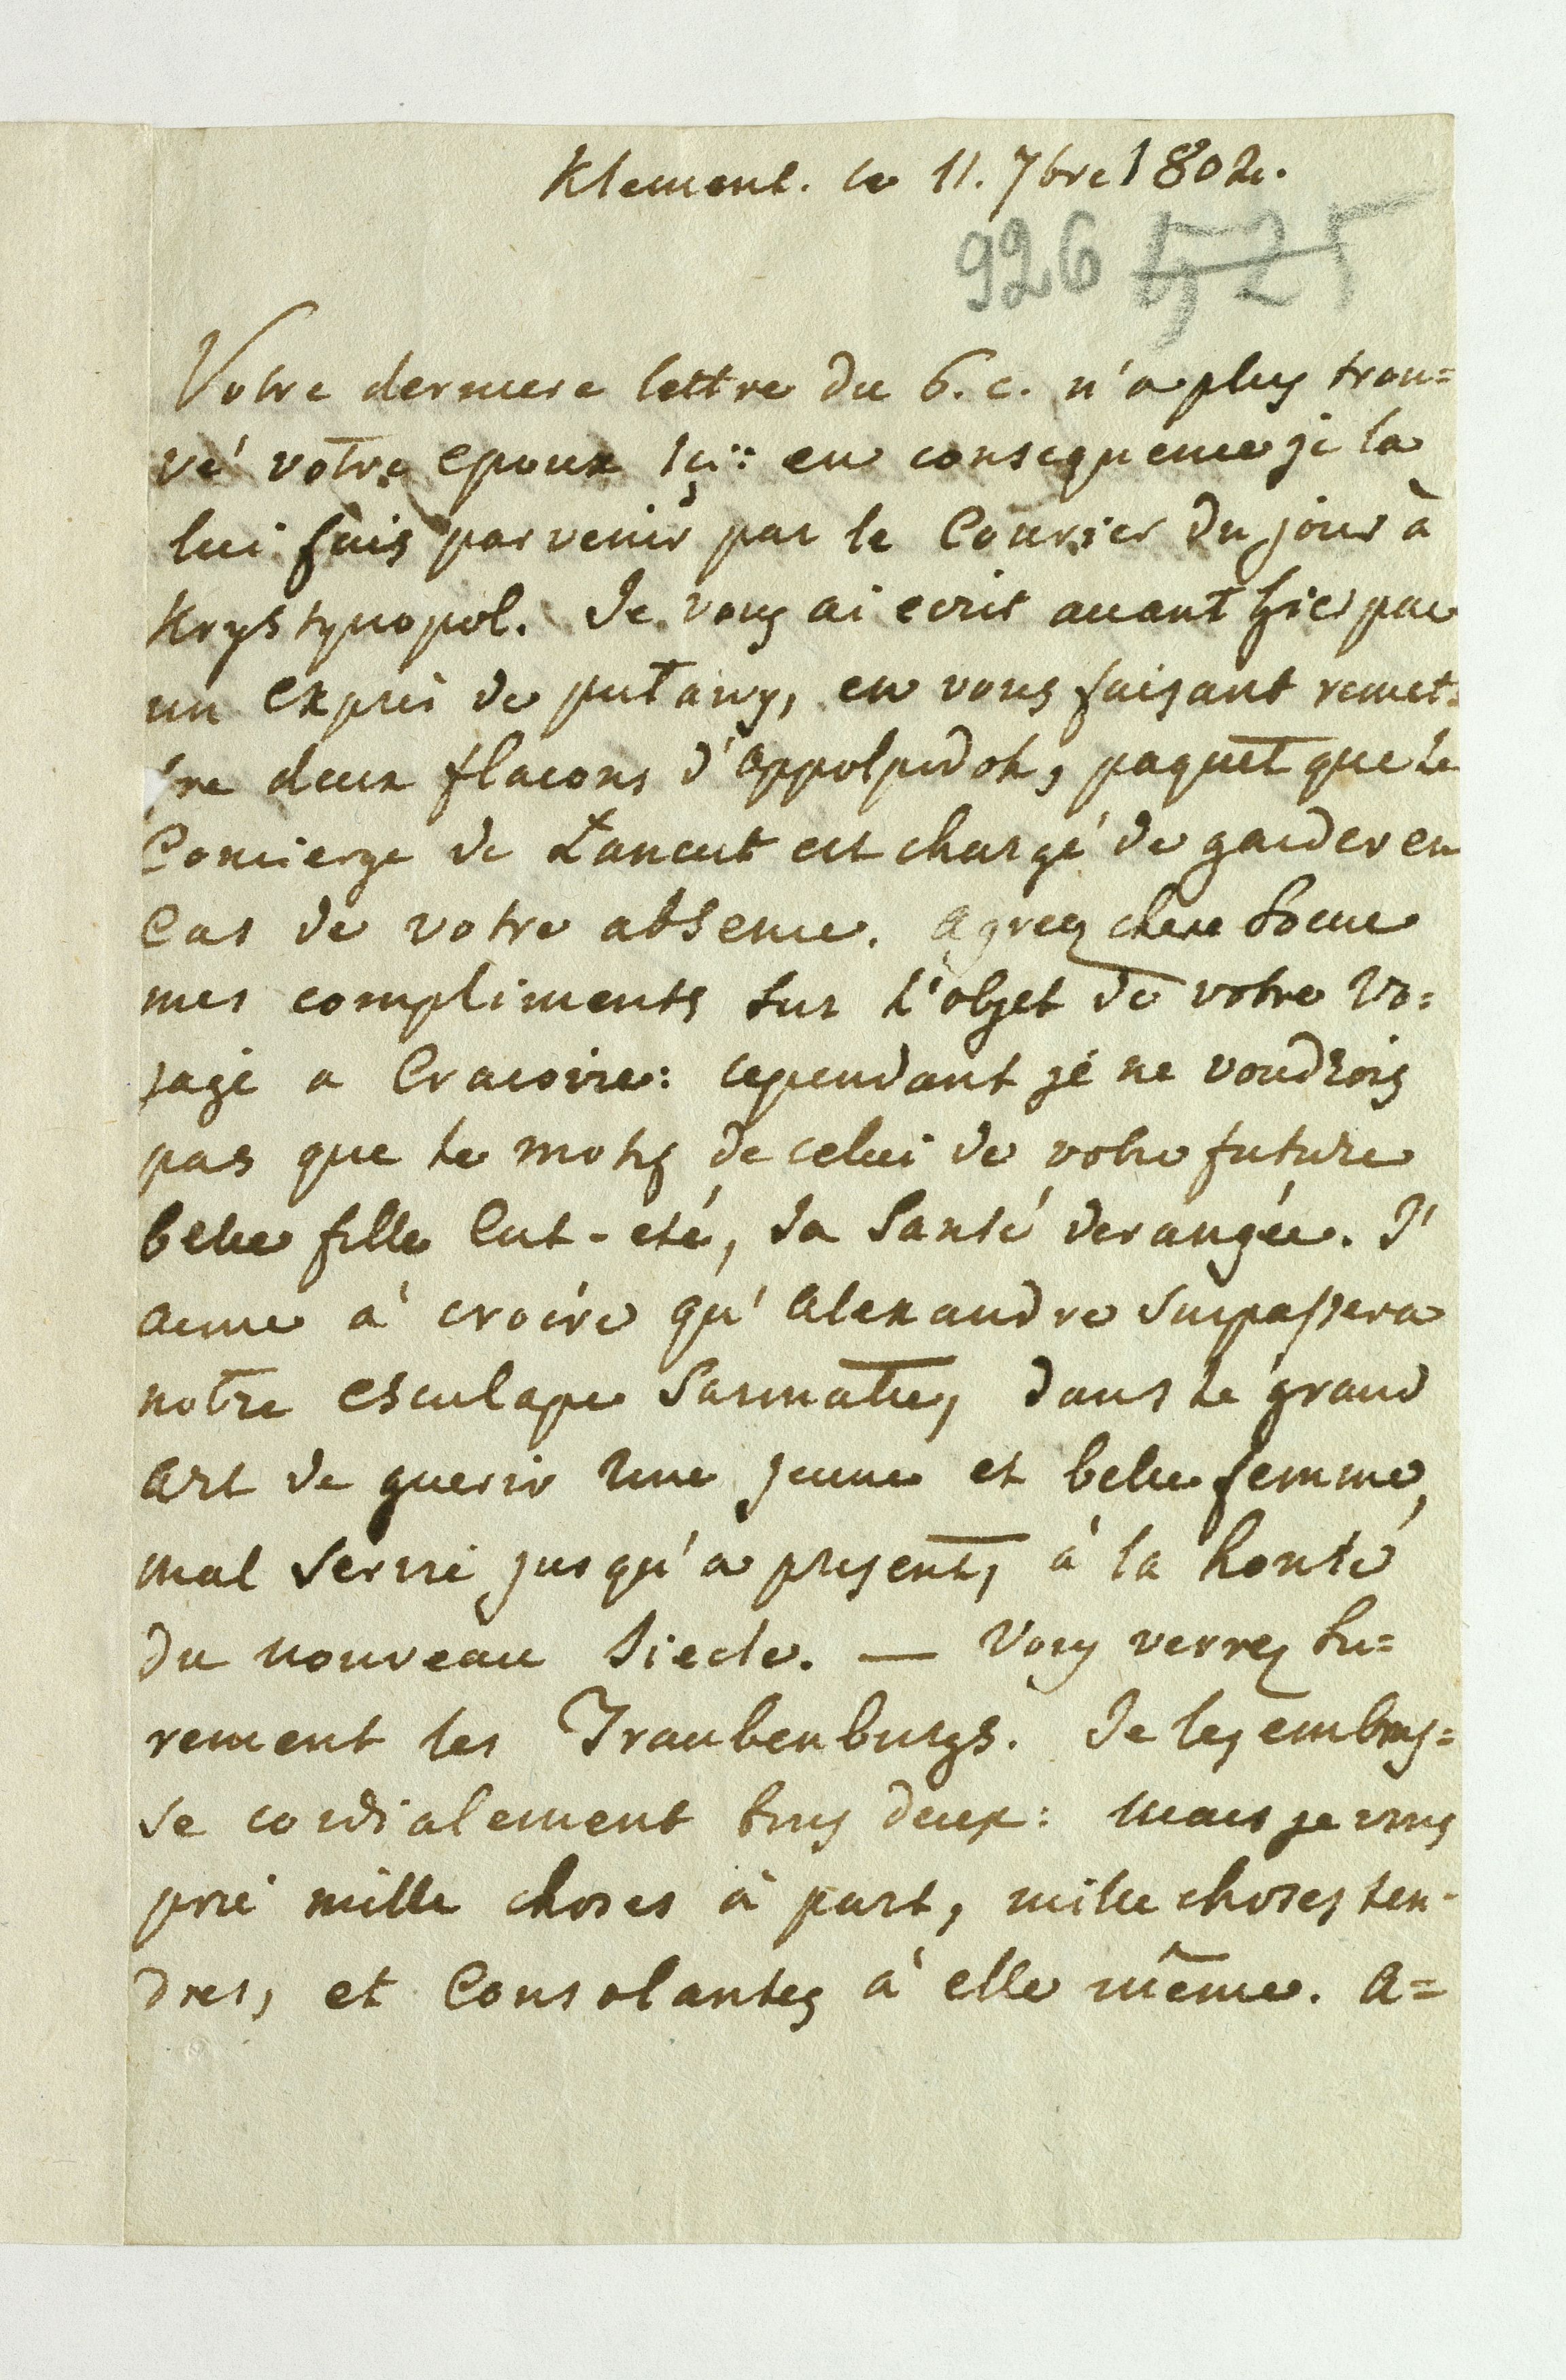 Klement. le 11. 7bre 1802.
926 525
Votre derniere lettre du 6. c. n'a plus trou=
vé votre epoux içi: en consequence je la
lui fais parvenir par le Courier du jour à
Krystynopol. Je vous ai ecrit avant hier par
un exprès de putany, en vous faisant remet=
tre deux flacons d'oppolpedok, paquet que le
Concierge de Łancut est chargé de garder en
Cas de votre absence. agreez chere Soeur
mes compliments sur l'objet de votre Vo=
jage a Cracovie: cependant je ne voudrois
pas que le motif de celui de votre future
belle fille eut-eté, sa Santé derangée. J'
aime à croire qu'Alexandre surpassera
notre esculape Sarmate, dans le grand
art de guerir une jeune et belle femme,
mal servie jusqu'a present, à la honte
du nouveau Siecle. — Vous verrez su=
rement les Traubenburgs. Je les embras=
se cordialement tous deux: mais je vous
prie mille choses à part, mille choses ten-
dres, et Consolantes à elle même. A=